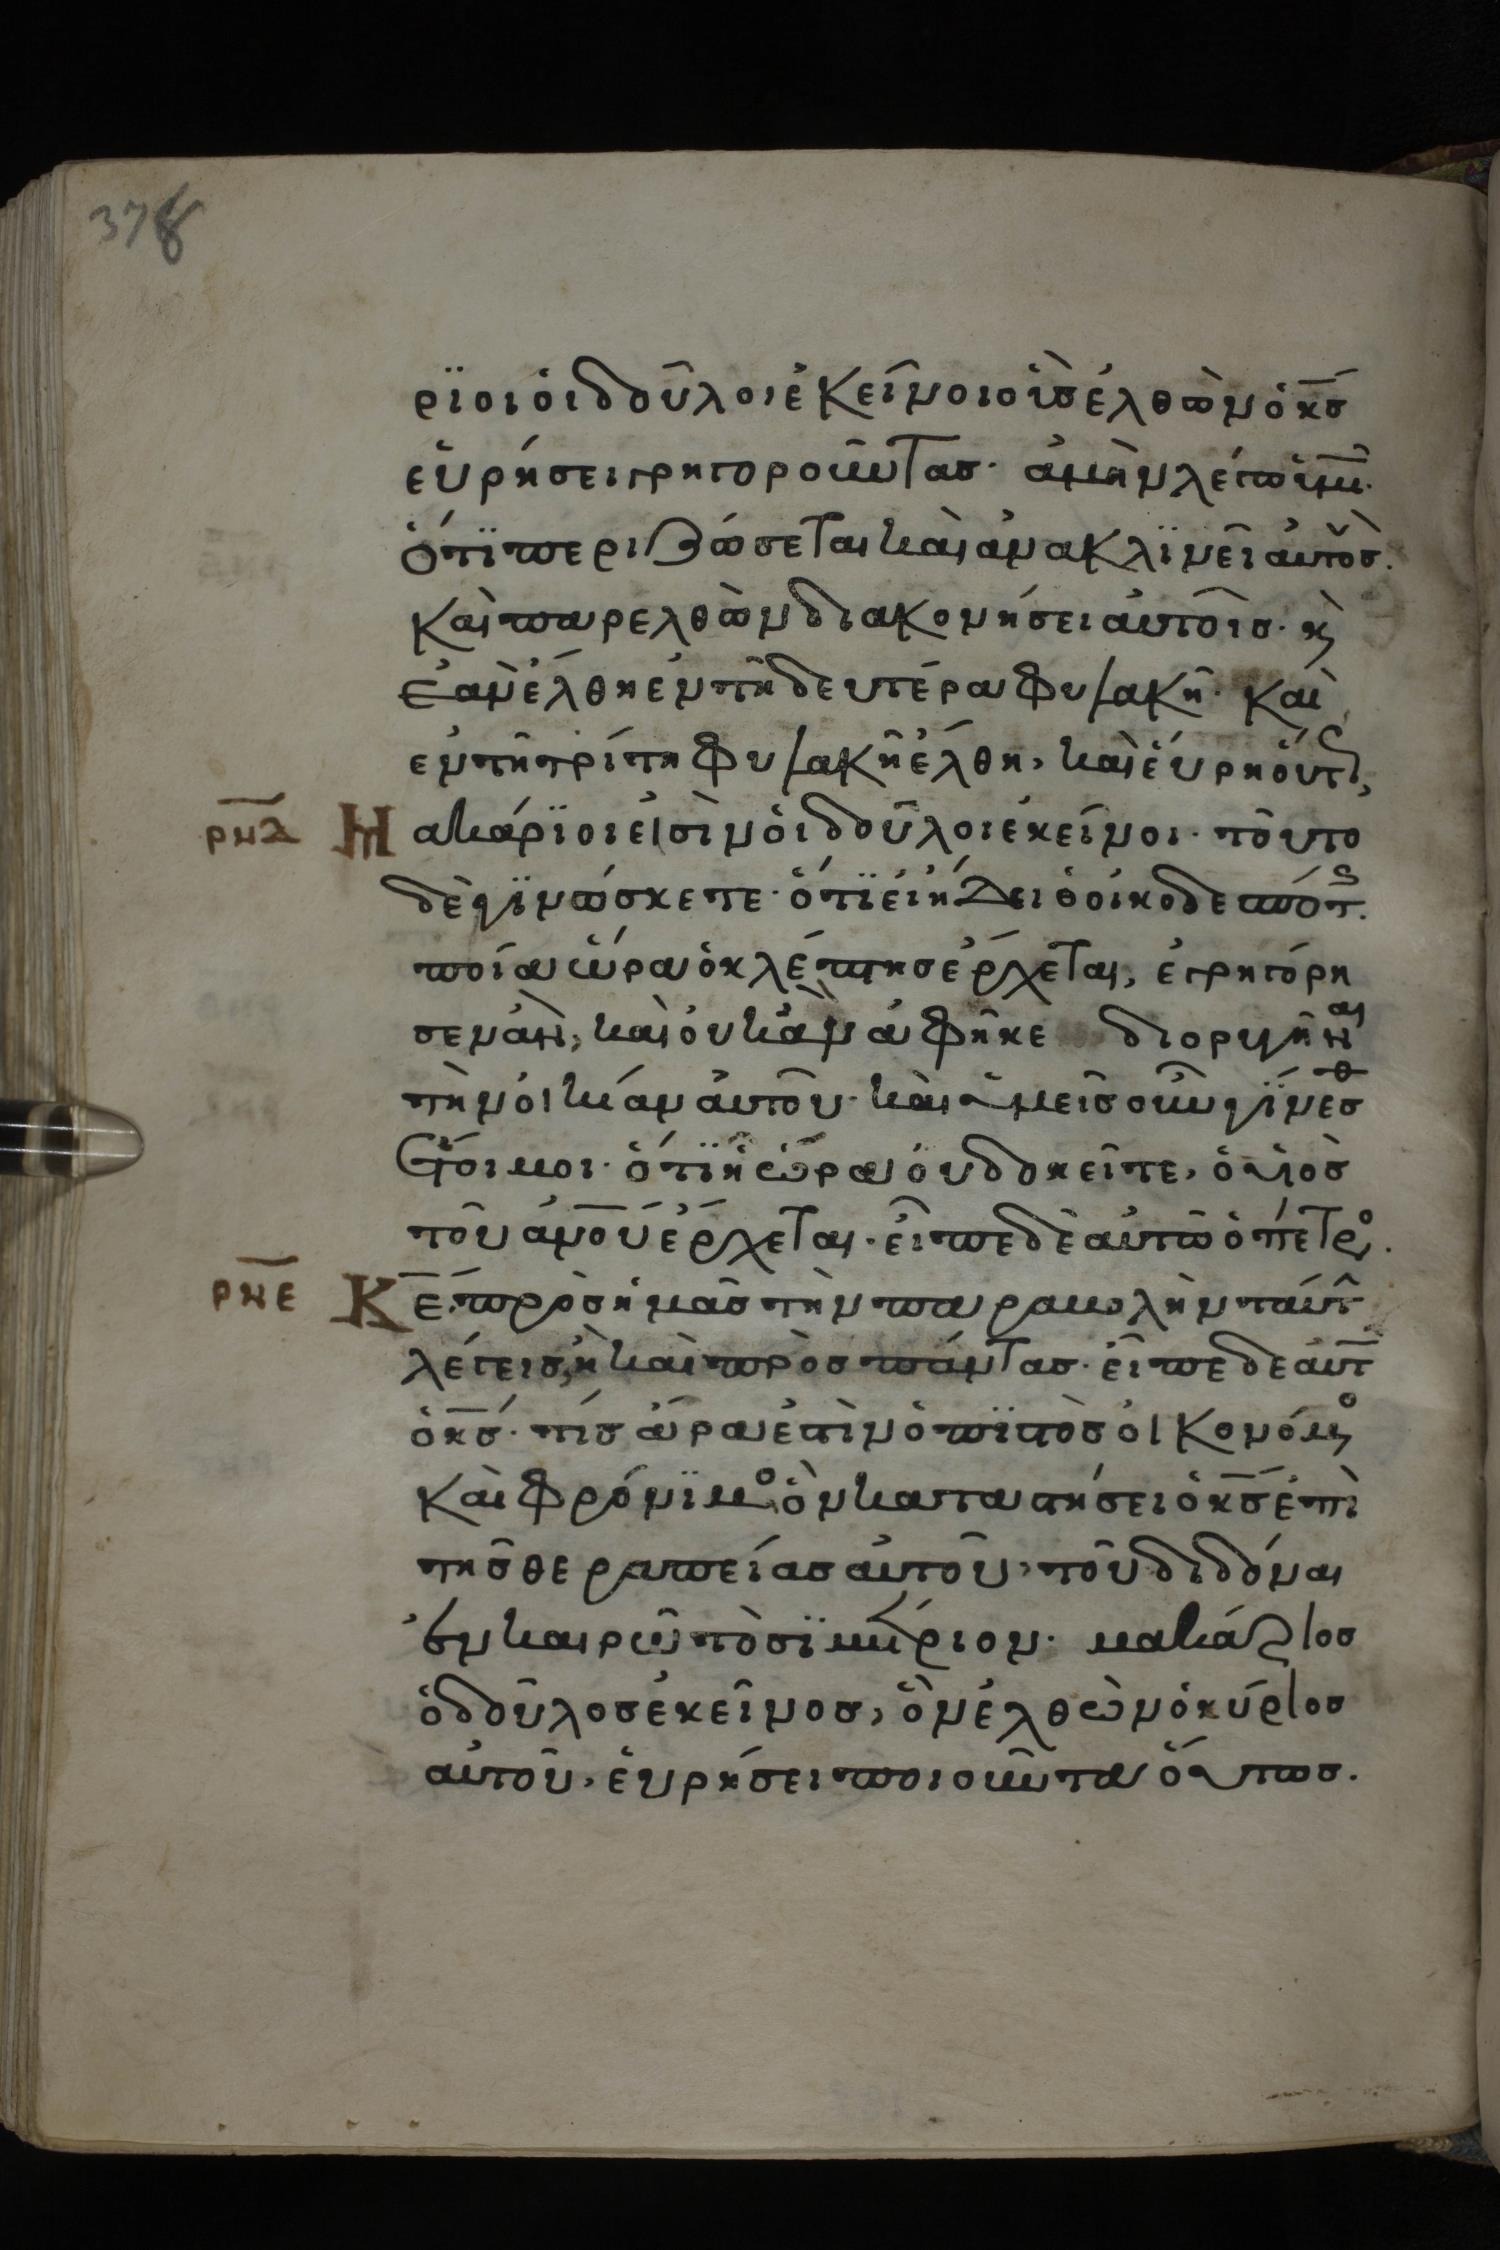 378
ρϊοι ὁι δοῦλοι ἐκεῖνοι οὓσ ἐλθὼν ὁ κ̅σ̅
εὑρήσει γρηγοροῦντασ· ἀμὴν λέγω ὑμ̅ι̅ν̅·
ὅτϊ περιζώσεται καὶ ἀνακλϊνεῖ αὐτοὺσ.
καὶ παρελθὼν διακονήσει αὐτοῖσ· κ̀
ἐὰν ἔλθη ἐν τῆ δευτέρα φυλακῆ· καὶ
ἐν τῆ τρίτη φυλακῆ ἔλθη, καὶ ἕυρη ὅυτς,
ρνδ Μακάρϊοι εἰσὶν ὁι δοῦλοι ἐκεῖνοι· τοῦτο
δὲ γϊνώσκετε· ὅτϊ ἐι ἤδει ὁ οἰκοδεσπότ·
ποία ὥρα ὁ κλέπτησ ἔρχεται, ἐγρηγόρη
σεν ἂν, καὶ ὀυκ ἂν ἀφῆκε διορυγῆναι
τὴν οἶκίαν ἀυτοῦ· καὶ ὑμεῖσ οὖν γϊνεσθ
ἕτοιμοι· ὅτϊ ἧ ὥρα ὀυ δοκεῖτε, ὁ υἱὸσ
τοῦ ἀν̅ο̅ύ̅ ἔρχεται· εἶπε δὲ αὐτῶ ὁ πέτρο.
ρνε Κ̅ε̅, πρὸσ ἡμᾶσ τὴν παραβολὴν ταύτ̅
λέγεισ, ἢ καὶ πρὸσ πάντασ· εἶπε δε ἀυτ̅
ὁ κ̅σ̅· τίσ ἄρα ἐστὶν ὁ πϊστὸσ οἰκονόμο
καὶ φρόνϊμο, ὃν καταστήσει ὁ κ̅σ̅ ἐπὶ
τῆσ θεραπείασ αὐτοῦ, τοῦ διδόναι
ἐν καιρῶ τὸ σϊτομέτριον· μακάριοσ
ὁ δοῦλοσ ἐκεῖνοσ, ὃν ἐλθὼν ὁ κύριοσ
αὐτοῦ, ἑυρήσει ποιοῦντα ὅυτωσ.